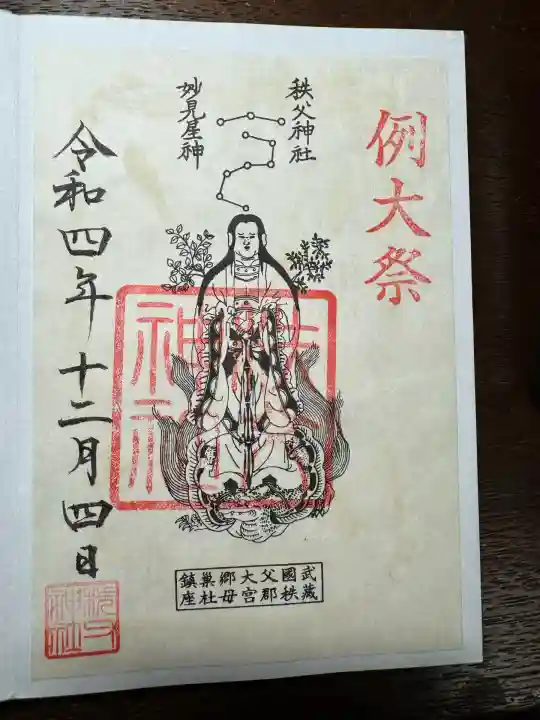 例大祭
秩父神社
妙見星神
令和四年十二月四日
武藏
國秩
父郡
大宮
郷母
巣杜
鎮座
秩父
神社